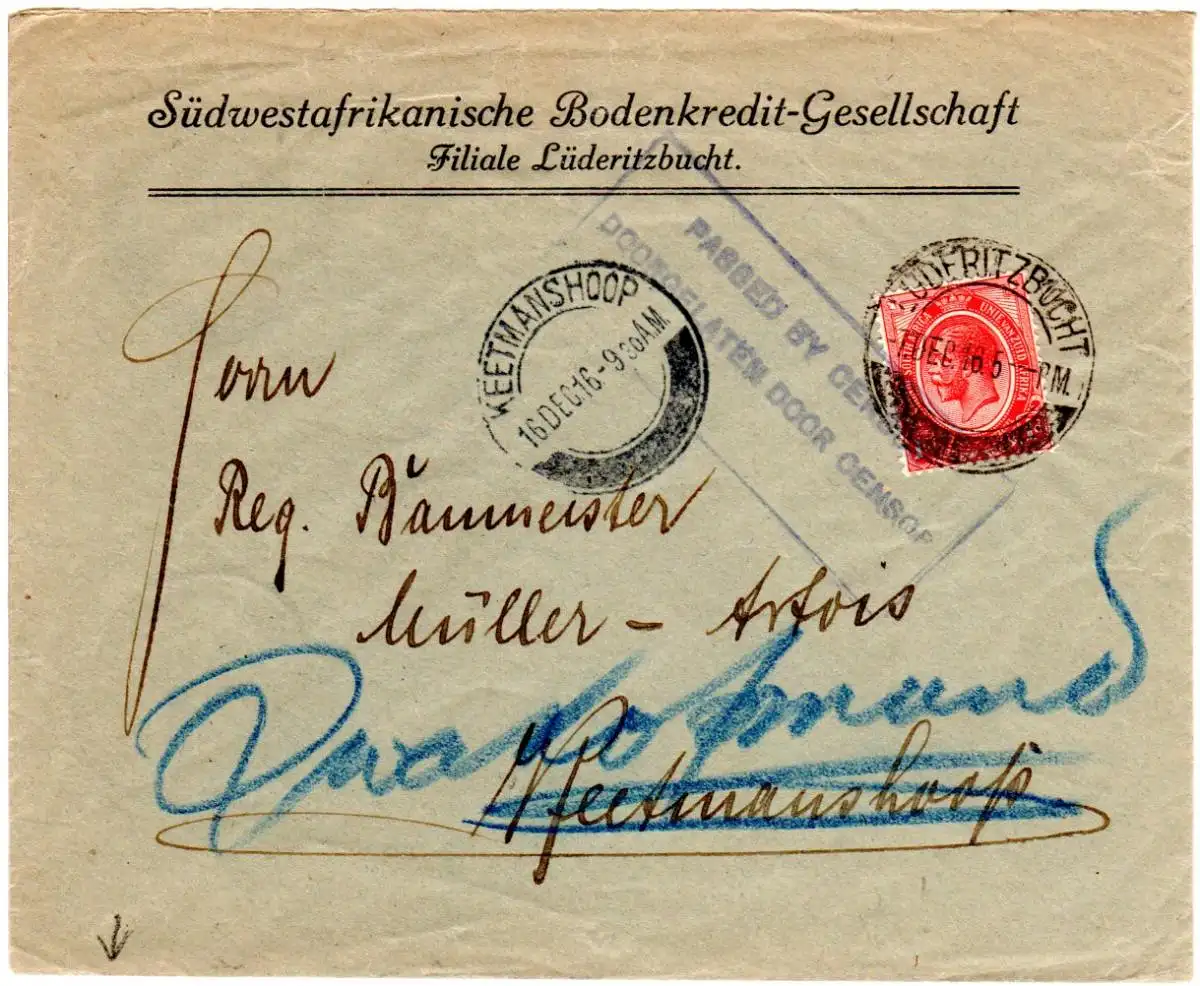 Südwestafrikanische Bodenkredit-Gesellschaft
Filiale Lüderitzbucht.
PASSED BY CENSOR
DOORGELATEN DOOR CENSOR
KEETMANSHOOP
16 DEC 16 - 9 30 AM
LÜDERITZBUCHT
DEC 16 5 - PM
UNIE VAN ZUID AFRIKA
Herrn
Reg. Baumeister
Müller - Artois
Swakopmund
Keetmanshoop